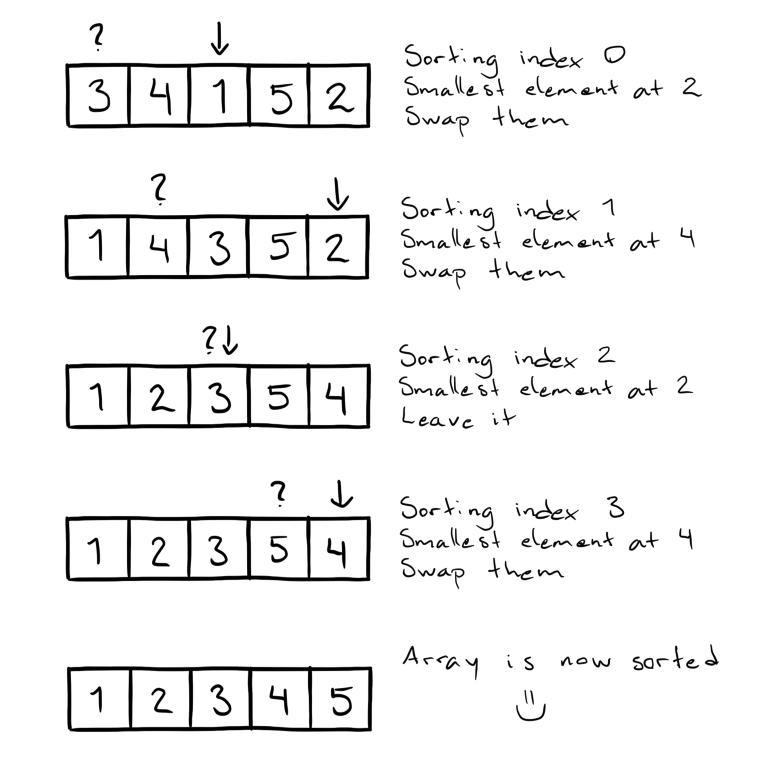 ? ↓
3 4 1 5 2
Sorting index 0
Smallest element at 2
Swap them
? ↓
1 4 3 5 2
Sorting index 1
Smallest element at 4
Swap them
?↓
1 2 3 5 4
Sorting index 2
Smallest element at 2
Leave it
? ↓
1 2 3 5 4
Sorting index 3
Smallest element at 4
Swap them
1 2 3 4 5
Array is now sorted